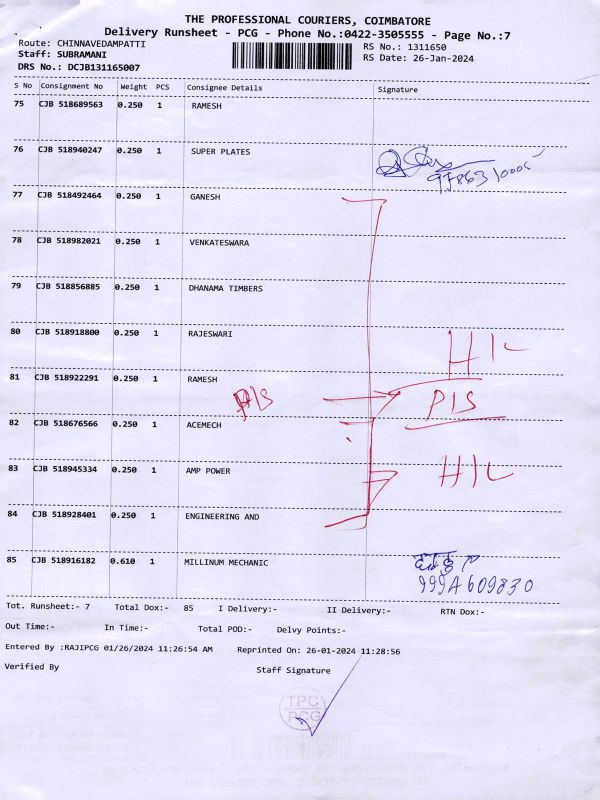 THE PROFESSIONAL COURIERS, COIMBATORE
Delivery Runsheet - PCG - Phone No.:0422-3505555 - Page No.:7
Route: CHINNAVEDAMPATTI RS No.: 1311650
Staff: SUBRAMANI RS Date: 26-Jan-2024
DRS No.: DCJB131165007
S No Consignment No Weight PCS Consignee Details Signature
75 CJB 518689563 0.250 1 RAMESH
76 CJB 518940247 0.250 1 SUPER PLATES
77 CJB 518492464 0.250 1 GANESH
78 CJB 518982021 0.250 1 VENKATESWARA
79 CJB 518856885 0.250 1 DHANAMA TIMBERS
80 CJB 518918800 0.250 1 RAJESWARI
H/L
81 CJB 518922291 0.250 1 RAMESH
P/S P/S
82 CJB 518676566 0.250 1 ACEMECH
83 CJB 518945334 0.250 1 AMP POWER H/L
84 CJB 518928401 0.250 1 ENGINEERING AND
85 CJB 518916182 0.610 1 MILLINUM MECHANIC
Tot. Runsheet:- 7 Total Dox:- 85 I Delivery:- II Delivery:- RTN Dox:-
Out Time:- In Time:- Total POD:- Delvy Points:-
Entered By :RAJIPCG 01/26/2024 11:26:54 AM Reprinted On: 26-01-2024 11:28:56
Verified By Staff Signature
TPC
PCG